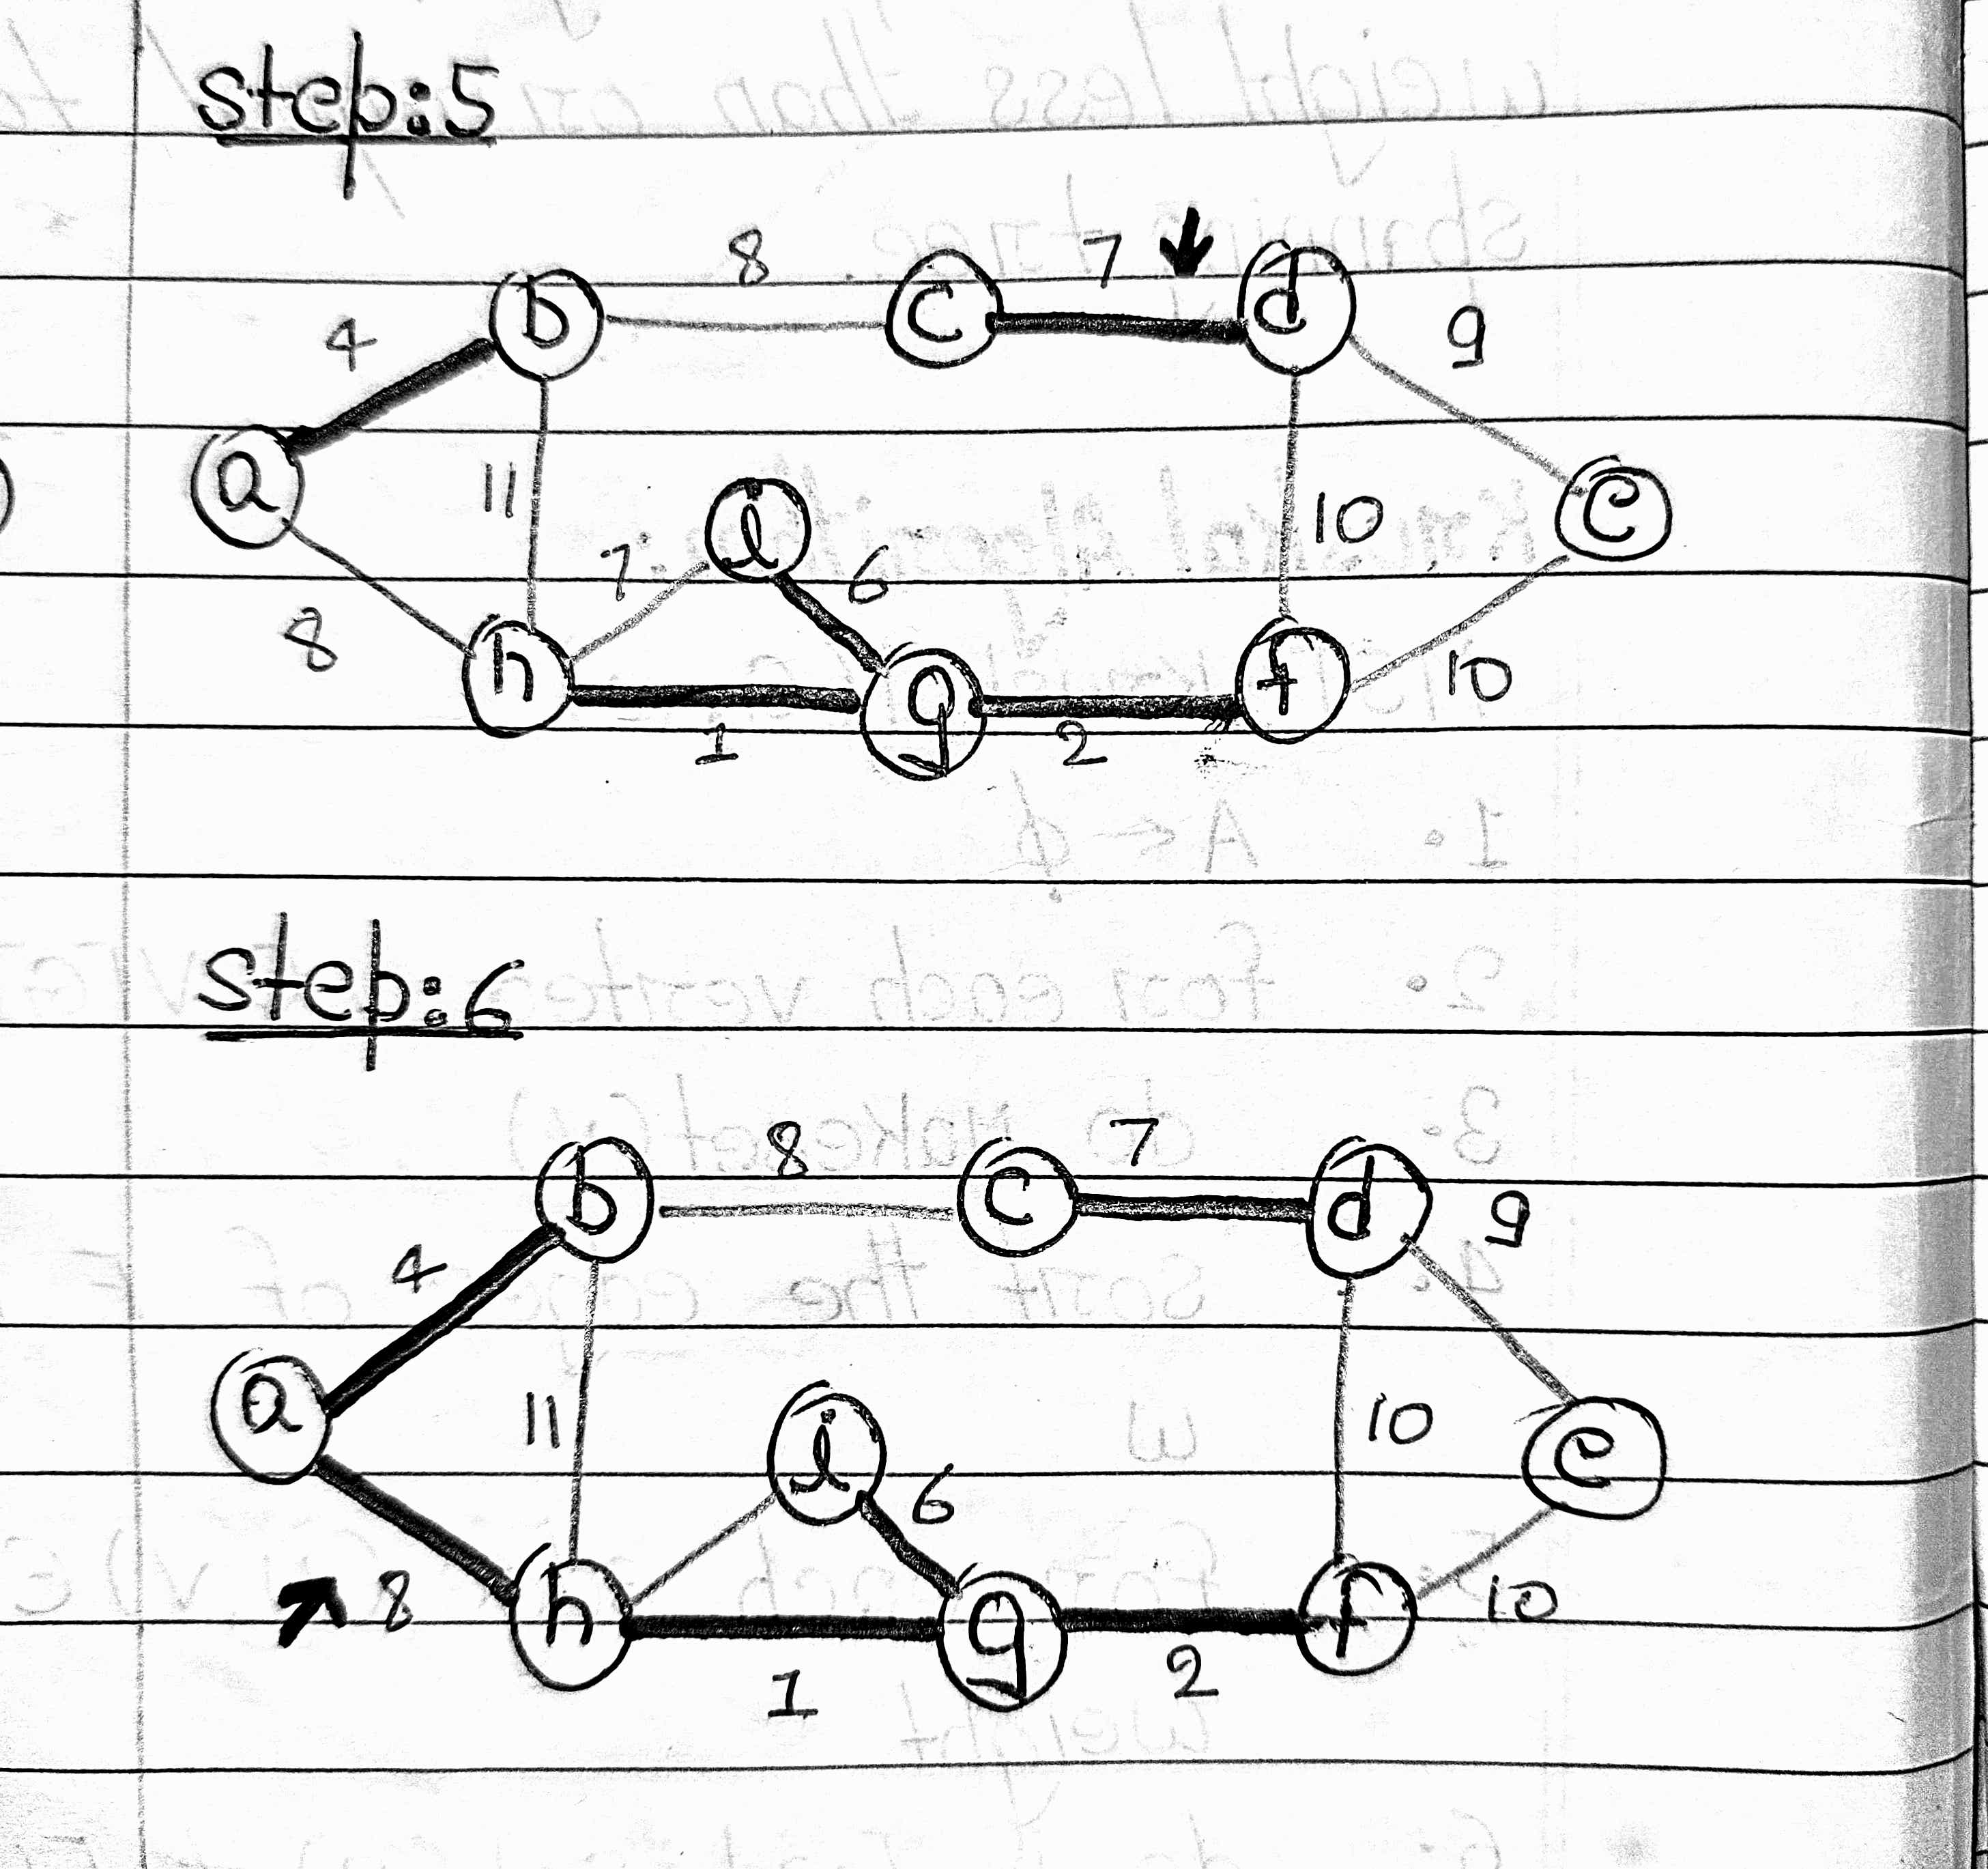 step:5
8 7
4 b c d 9
a 11 i 10 e
7 6
8 h g f 10
1 2
step:6
8 7
b c d 9
4
a 11 i 10 e
6
8 h g f 10
1 2